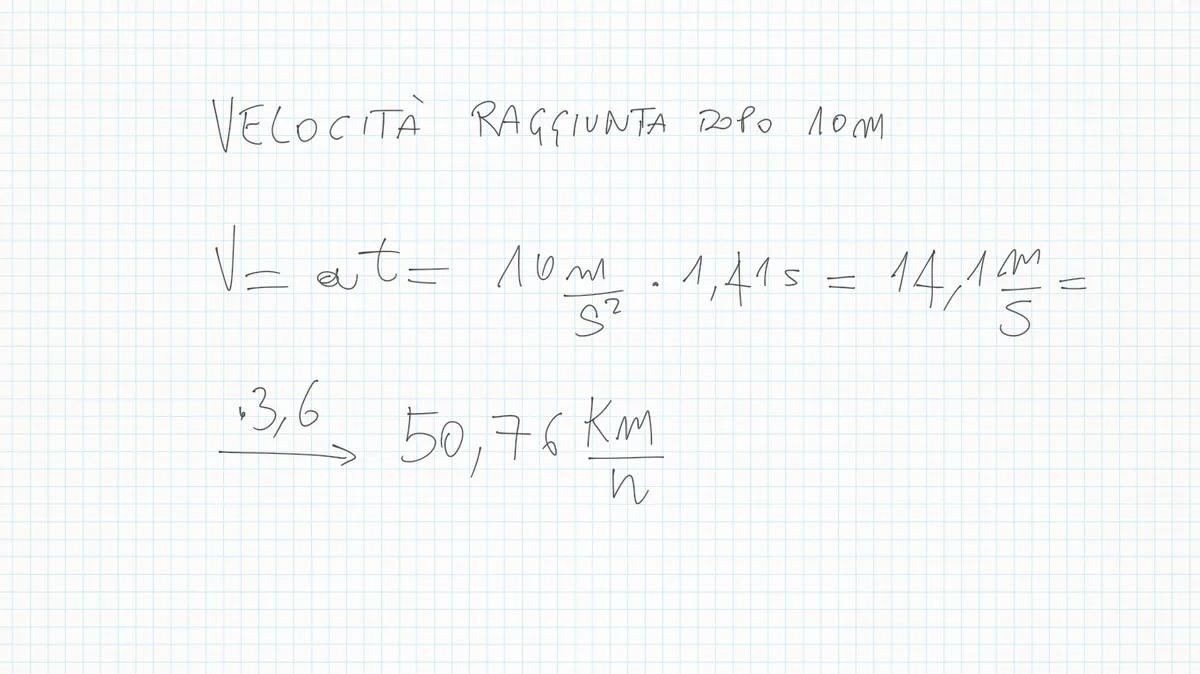 VELOCITÀ RAGGIUNTA DOPO 10M
V = at = 10 m/s² · 1,41s = 14,1 m/s =
·3,6 → 50,76 Km/h